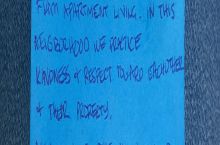 FROM APARTMENT LIVING. IN THIS
NEIGHBORHOOD WE PRACTICE
KINDNESS & RESPECT TOWARD EACHOTHER
& THEIR PROPERTY.